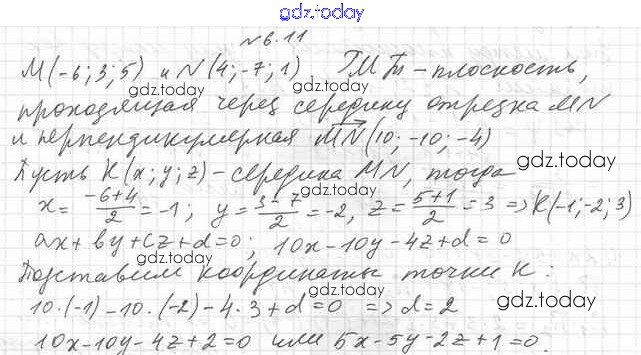 gdz.today
№6.11
M(-6; 3; 5) и N(4; -7; 1) ГМТ - плоскость,
проходящая через середину отрезка MN
и перпендикулярная MN(10; -10; -4)
Пусть K(x; y; z) - середина MN, тогда
x = (-6+4)/2 = -1; y = (3-7)/2 = -2, z = (5+1)/2 = 3 => K(-1; -2; 3)
ax + by + cz + d = 0; 10x - 10y - 4z + d = 0
Подставим координаты точки K:
10·(-1) - 10·(-2) - 4·3 + d = 0 => d = 2
10x - 10y - 4z + 2 = 0 или 5x - 5y - 2z + 1 = 0.
gdz.today
gdz.today
gdz.today
gdz.today
gdz.today
gdz.today
gdz.today
gdz.today